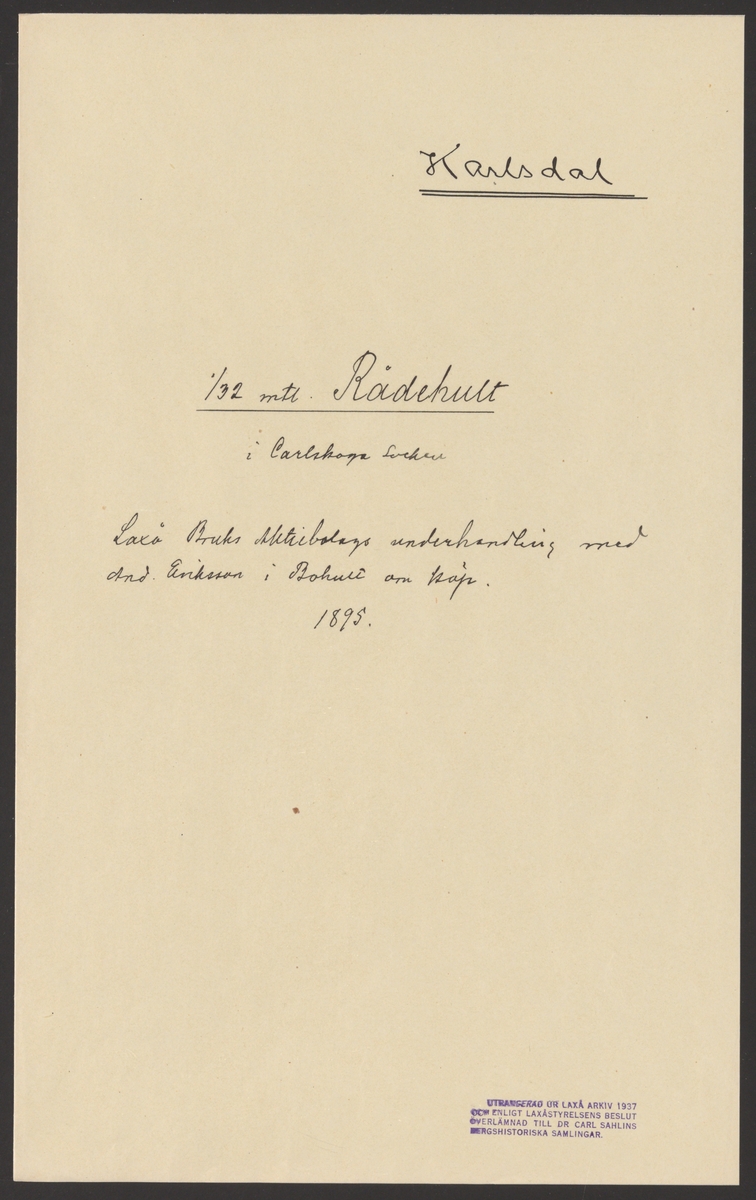 Karlsdal
1/32 mtl. Rådehult
i Carlskoga Socken
Laxå Bruks Aktiebolags underhandling med
And. Eriksson i Bohult om köp.
1895.
UTRANGERAD UR LAXÅ ARKIV 1937
OCH ENLIGT LAXÅSTYRELSENS BESLUT
ÖVERLÄMNAD TILL DR CARL SAHLINS
BERGSHISTORISKA SAMLINGAR.